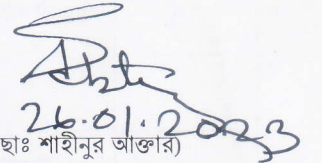 26.01.2023
ছাঃ শাহীনুর আক্তার)